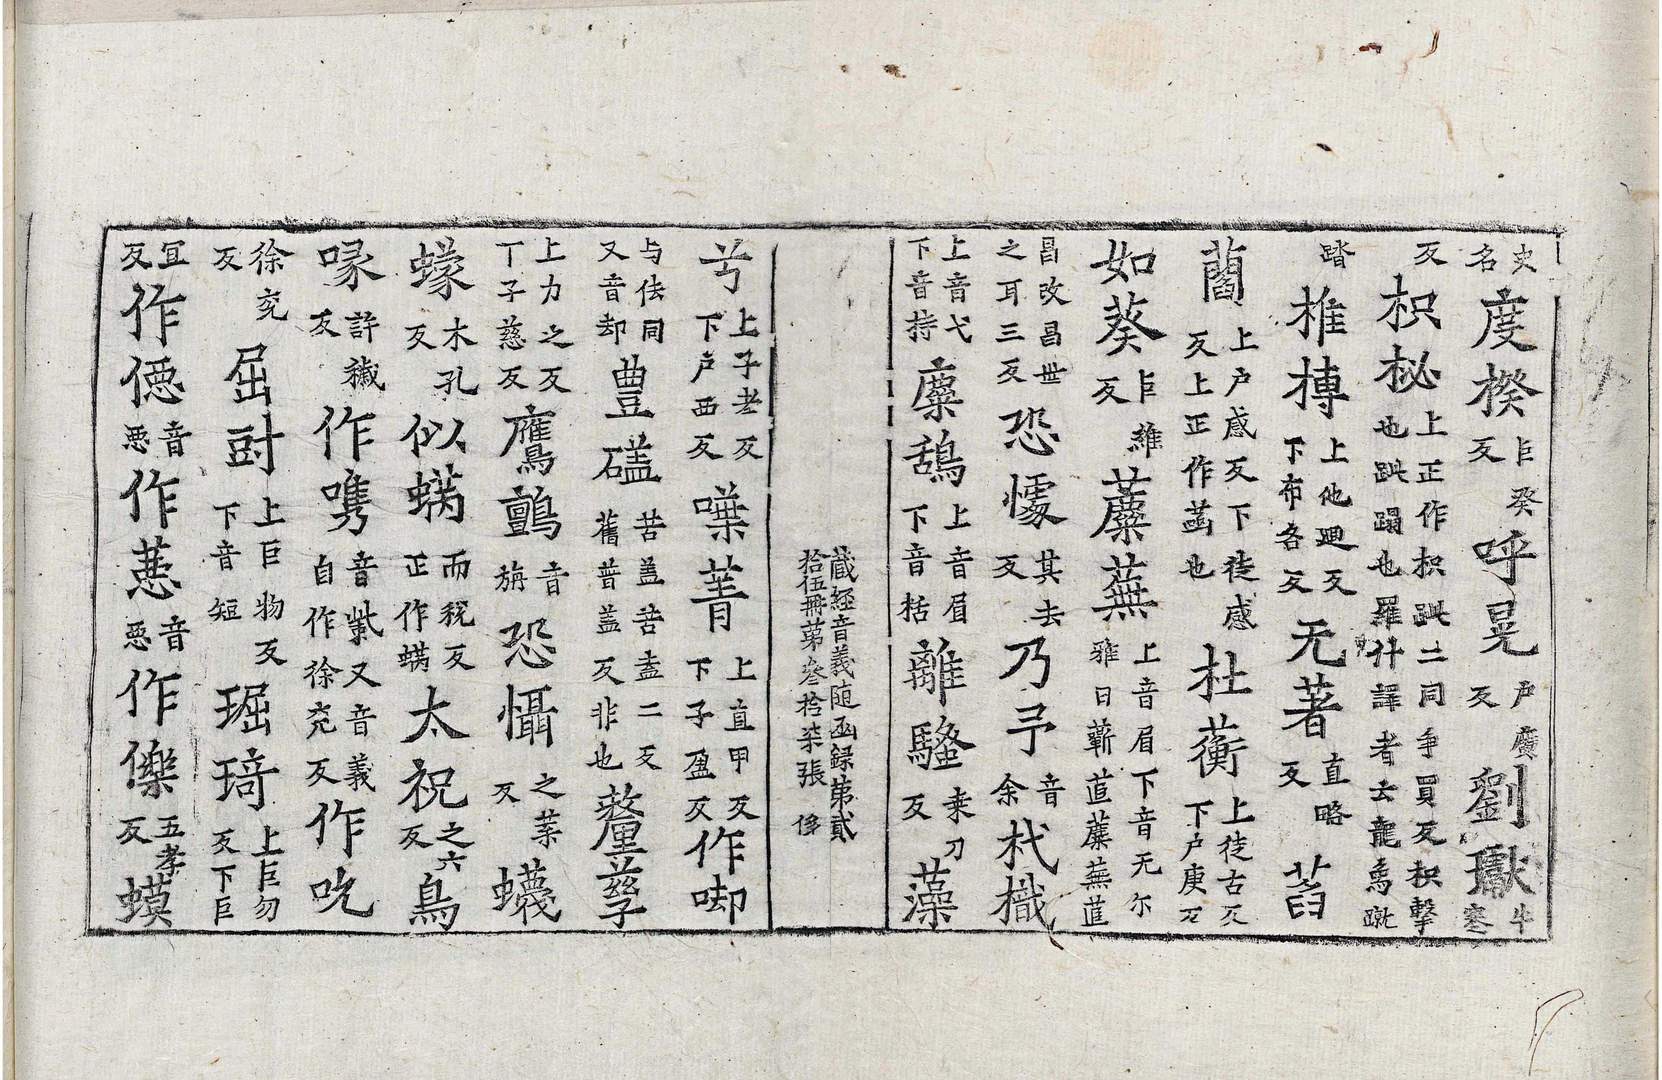 史名度揆巨癸反呼晃戸廣反劉獻牛寒
反枳柲上正作枳䟗二同爭買反枳擊也䟗蹋也羅什譯者云龍馬蹴
踏椎摶上他迴反下布各反无著直略反萏
藺上戸感反下徒感反上正作菡也杜蘅上徒古反下戸庚反
如葵巨維反蘪蕪上音眉下音无尔雅曰蘄茝蘪蕪茝
昌改昌世之耳三反恐懅其去反乃弓音余杙樴
上音弋下音持麋鴰上音眉下音括離騷桒刀反藻
藏經音義随函録第貳拾伍冊第叁拾柒張 侈
兮上子老反下戸西反嘩菁上直甲反下子盈反作啣
与佉同又音却豊礚苦盖苦盍二反舊普盖反非也蕯孶
上力之反丁子慈反鷹鸇音旃恐懾之葉反蠛
蠓木孔反似螨而稅反正作蝡太祝之六反鳥
喙許穢反作嘴音觜又音義自作徐兖反作吮
徐兖反屈㪷上巨物反下音短琚琦上巨勿反下巨
宜反作僫音惡作蕙音惡作傑五孝反蟆